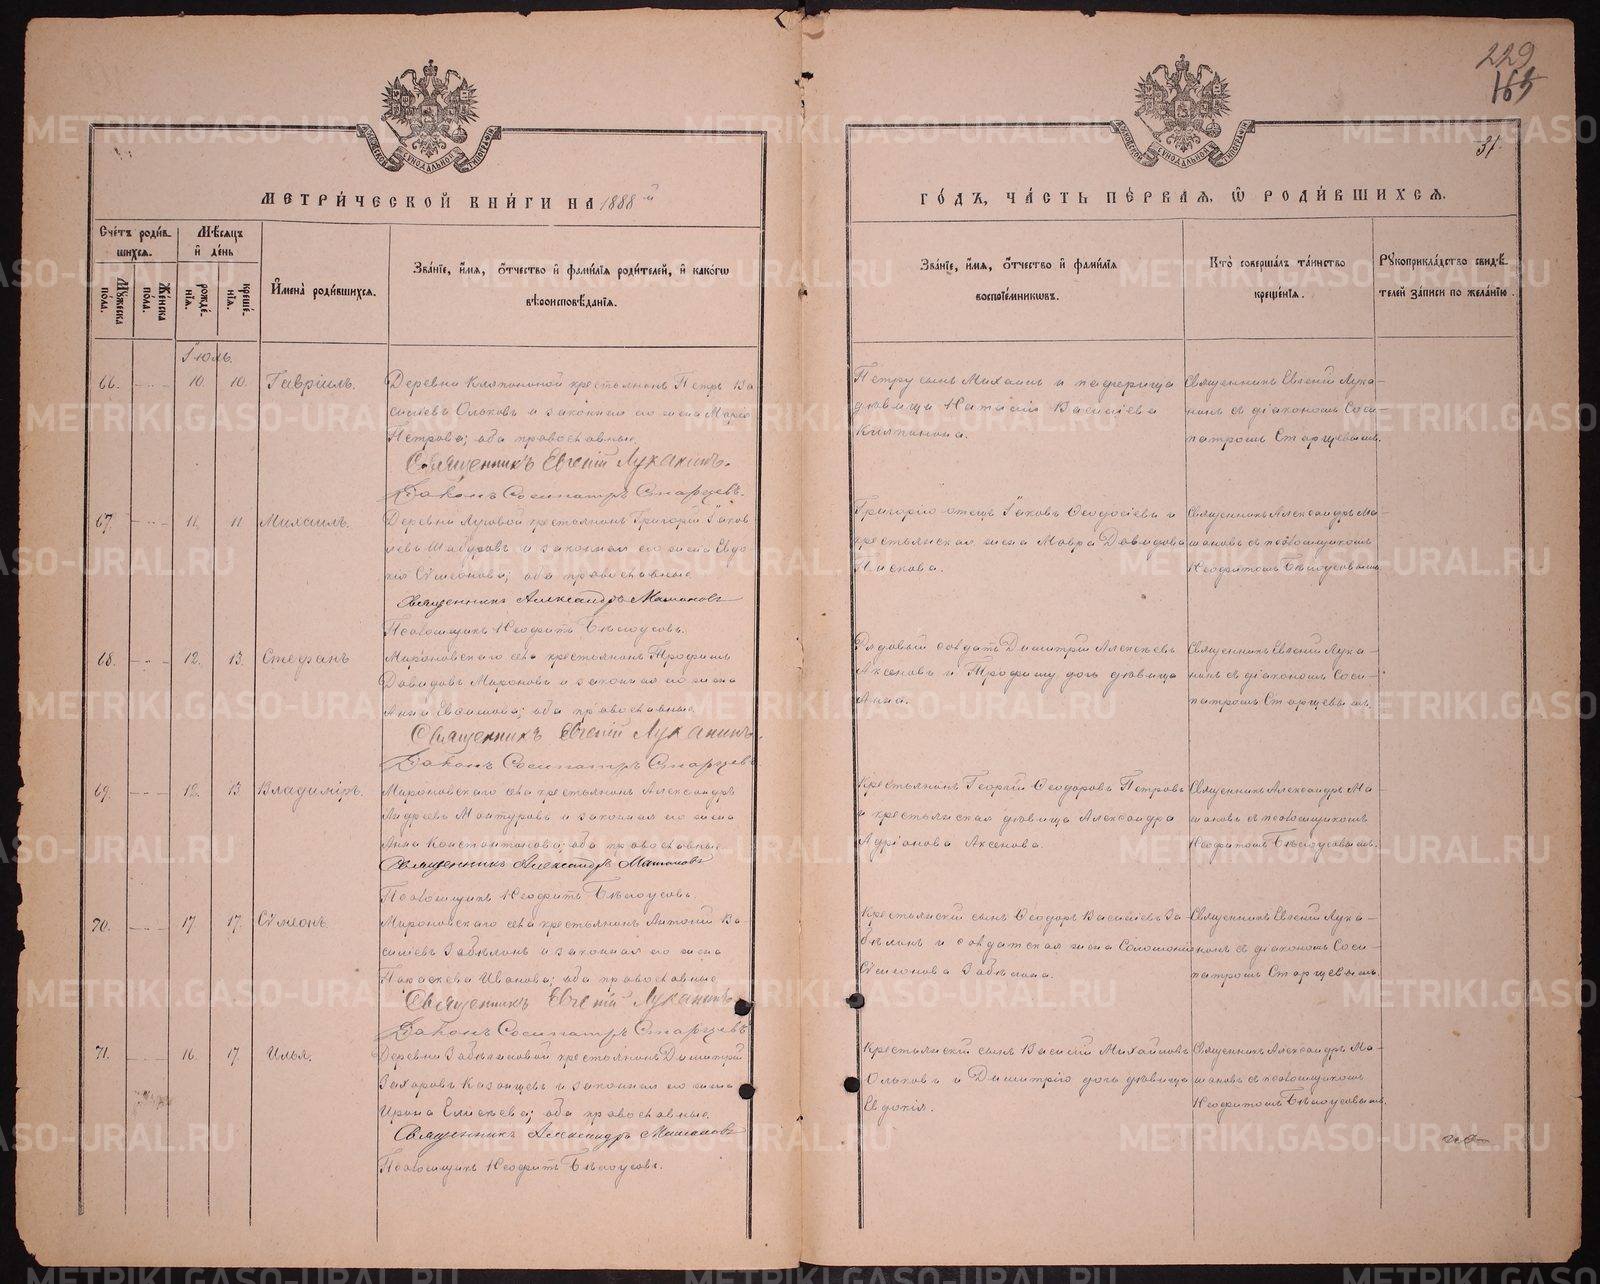 229
165
31.
МОСКОВСКОЙ СѴНОДАЛЬНОЙ ТИПОГРАФІИ
МОСКОВСКОЙ СѴНОДАЛЬНОЙ ТИПОГРАФІИ
МЕТРИ́ЧЕСКОЙ КНИ́ГИ НА 1888й
ГО́ДЪ, ЧА́СТЬ ПЕ́РВАЯ, Ѡ РОДИ́ВШИХСЯ.
Сче́тъ роди́в
шихся.
Мꙋжеска по́ла.
Же́нска по́ла.
Мѣ́сяцъ
и҆ де́нь
рожде́нїя.
креще́нїя.
И҆мена̀ роди́вшихся.
Зва́нїе, и҆́мя, ѻ҆́тчество и҆ фамѝлїѧ роди́телей, и҆ како́гѡ
вѣроисповѣ́данїя.
Зва́нїе, и҆́мя, ѻ҆́тчество и҆ фами́лїя
воспрїе́мникѡвъ.
Кто̀ соверша́лъ та́инство
креще́нїя.
Рꙋкоприкла́дство свидѣ́
телей за́писи по жела́нїю.
Іюль.
66.
10.
10.
Гавріилъ.
Деревни Кляпониной крестьянинъ Петръ Ва-
силіевъ Ольковъ и законная его жена Марія
Петрова; оба православные.
Священникъ Евгеній Луканинъ.
Діаконъ Сосипатръ Старцевъ.
Петру сынъ Михаилъ и
дѣвица Наталія Василіева
Священникъ Евгеній Лука-
нинъ съ діакономъ Соси-
патромъ Старцевымъ.
67.
11.
11.
Михаилъ.
Деревни Луговой крестьянинъ Григорій Іаков
левъ Шабуровъ и законная его жена Евдо-
кія Сѵмеонова; оба православные
Священникъ Александръ Мамоновъ
Псаломщикъ Неофитъ Бѣлоусовъ.
Григорію отецъ Іаковъ Ѳеодосіевъ и
крестьянская жена Мавра Давидова
Пискова.
Священникъ Александръ Ма-
моновъ съ псаломщикомъ
Неофитомъ Бѣлоусовымъ.
68.
12.
13.
Стефанъ
Мироновскаго села крестьянинъ Трофимъ
Давидовъ Мироновъ и законная его жена
Анна Евсимова; оба православные
Священникъ Евгеній Луканинъ.
Діаконъ Сосипатръ Старцевъ
Рядовый солдатъ Димитрій Алексѣевъ
Аксеновъ и Трофиму дочь дѣвица
Анна.
Священникъ Евгеній Лука-
нинъ съ діакономъ Соси-
патромъ Старцевымъ.
69.
12.
13
Владиміръ.
Мироновскаго села крестьянинъ Александръ
Андреевъ Мантуровъ и законная его жена
Анна Константинова; оба православные
Священникъ Александръ Мамоновъ
Псаломщикъ Неофитъ Бѣлоусовъ
Крестьянинъ Георгій Ѳеодоровъ Петровъ
и крестьянская дѣвица Александра
Адріанова Аксенова.
Священникъ Александръ Ма-
моновъ съ псаломщикомъ
Неофитомъ Бѣлоусовымъ.
70.
17.
17.
Сѵмеонъ.
Мироновскаго села крестьянинъ Антоній Ва-
силіевъ Забѣлинъ и законная его жена
Параскева Иванова; оба православные
Священникъ Евгеній Луканинъ
Діаконъ Сосипатръ Старцевъ
Крестьянскій сынъ Ѳеодоръ Василіевъ За-
бѣлинъ и солдатская жена Соломонія
Сѵмеонова Забѣлина.
Священникъ Евгеній Лука-
нинъ съ діакономъ Соси-
патромъ Старцевымъ.
71.
16.
17.
Илья.
Деревни Забѣлиновой крестьянинъ Димитрій
Захаровъ Казанцевъ и законная его жена
Ирина Елисѣева; оба православные.
Священникъ Александръ Мамоновъ
Псаломщикъ Неофитъ Бѣлоусовъ.
Крестьянскій сынъ Василій Михайловъ
Ольковъ и Димитрію дочь дѣвица
Евдокія.
Священникъ Александръ Ма-
моновъ съ псаломщикомъ
Неофитомъ Бѣлоусовымъ.
METRIKI.GASO-URAL.RU